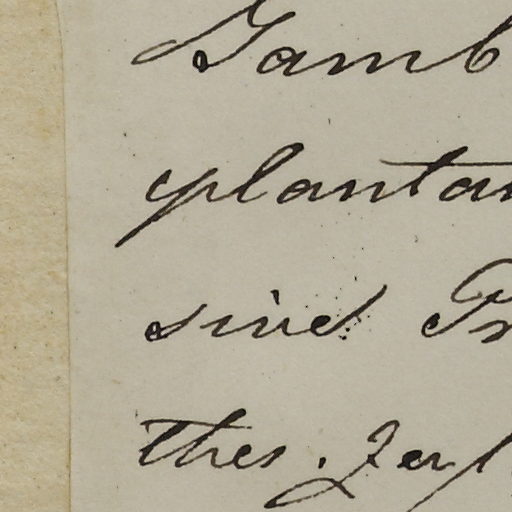 Gamb
plantan
sine Pr
thes. Zeyl